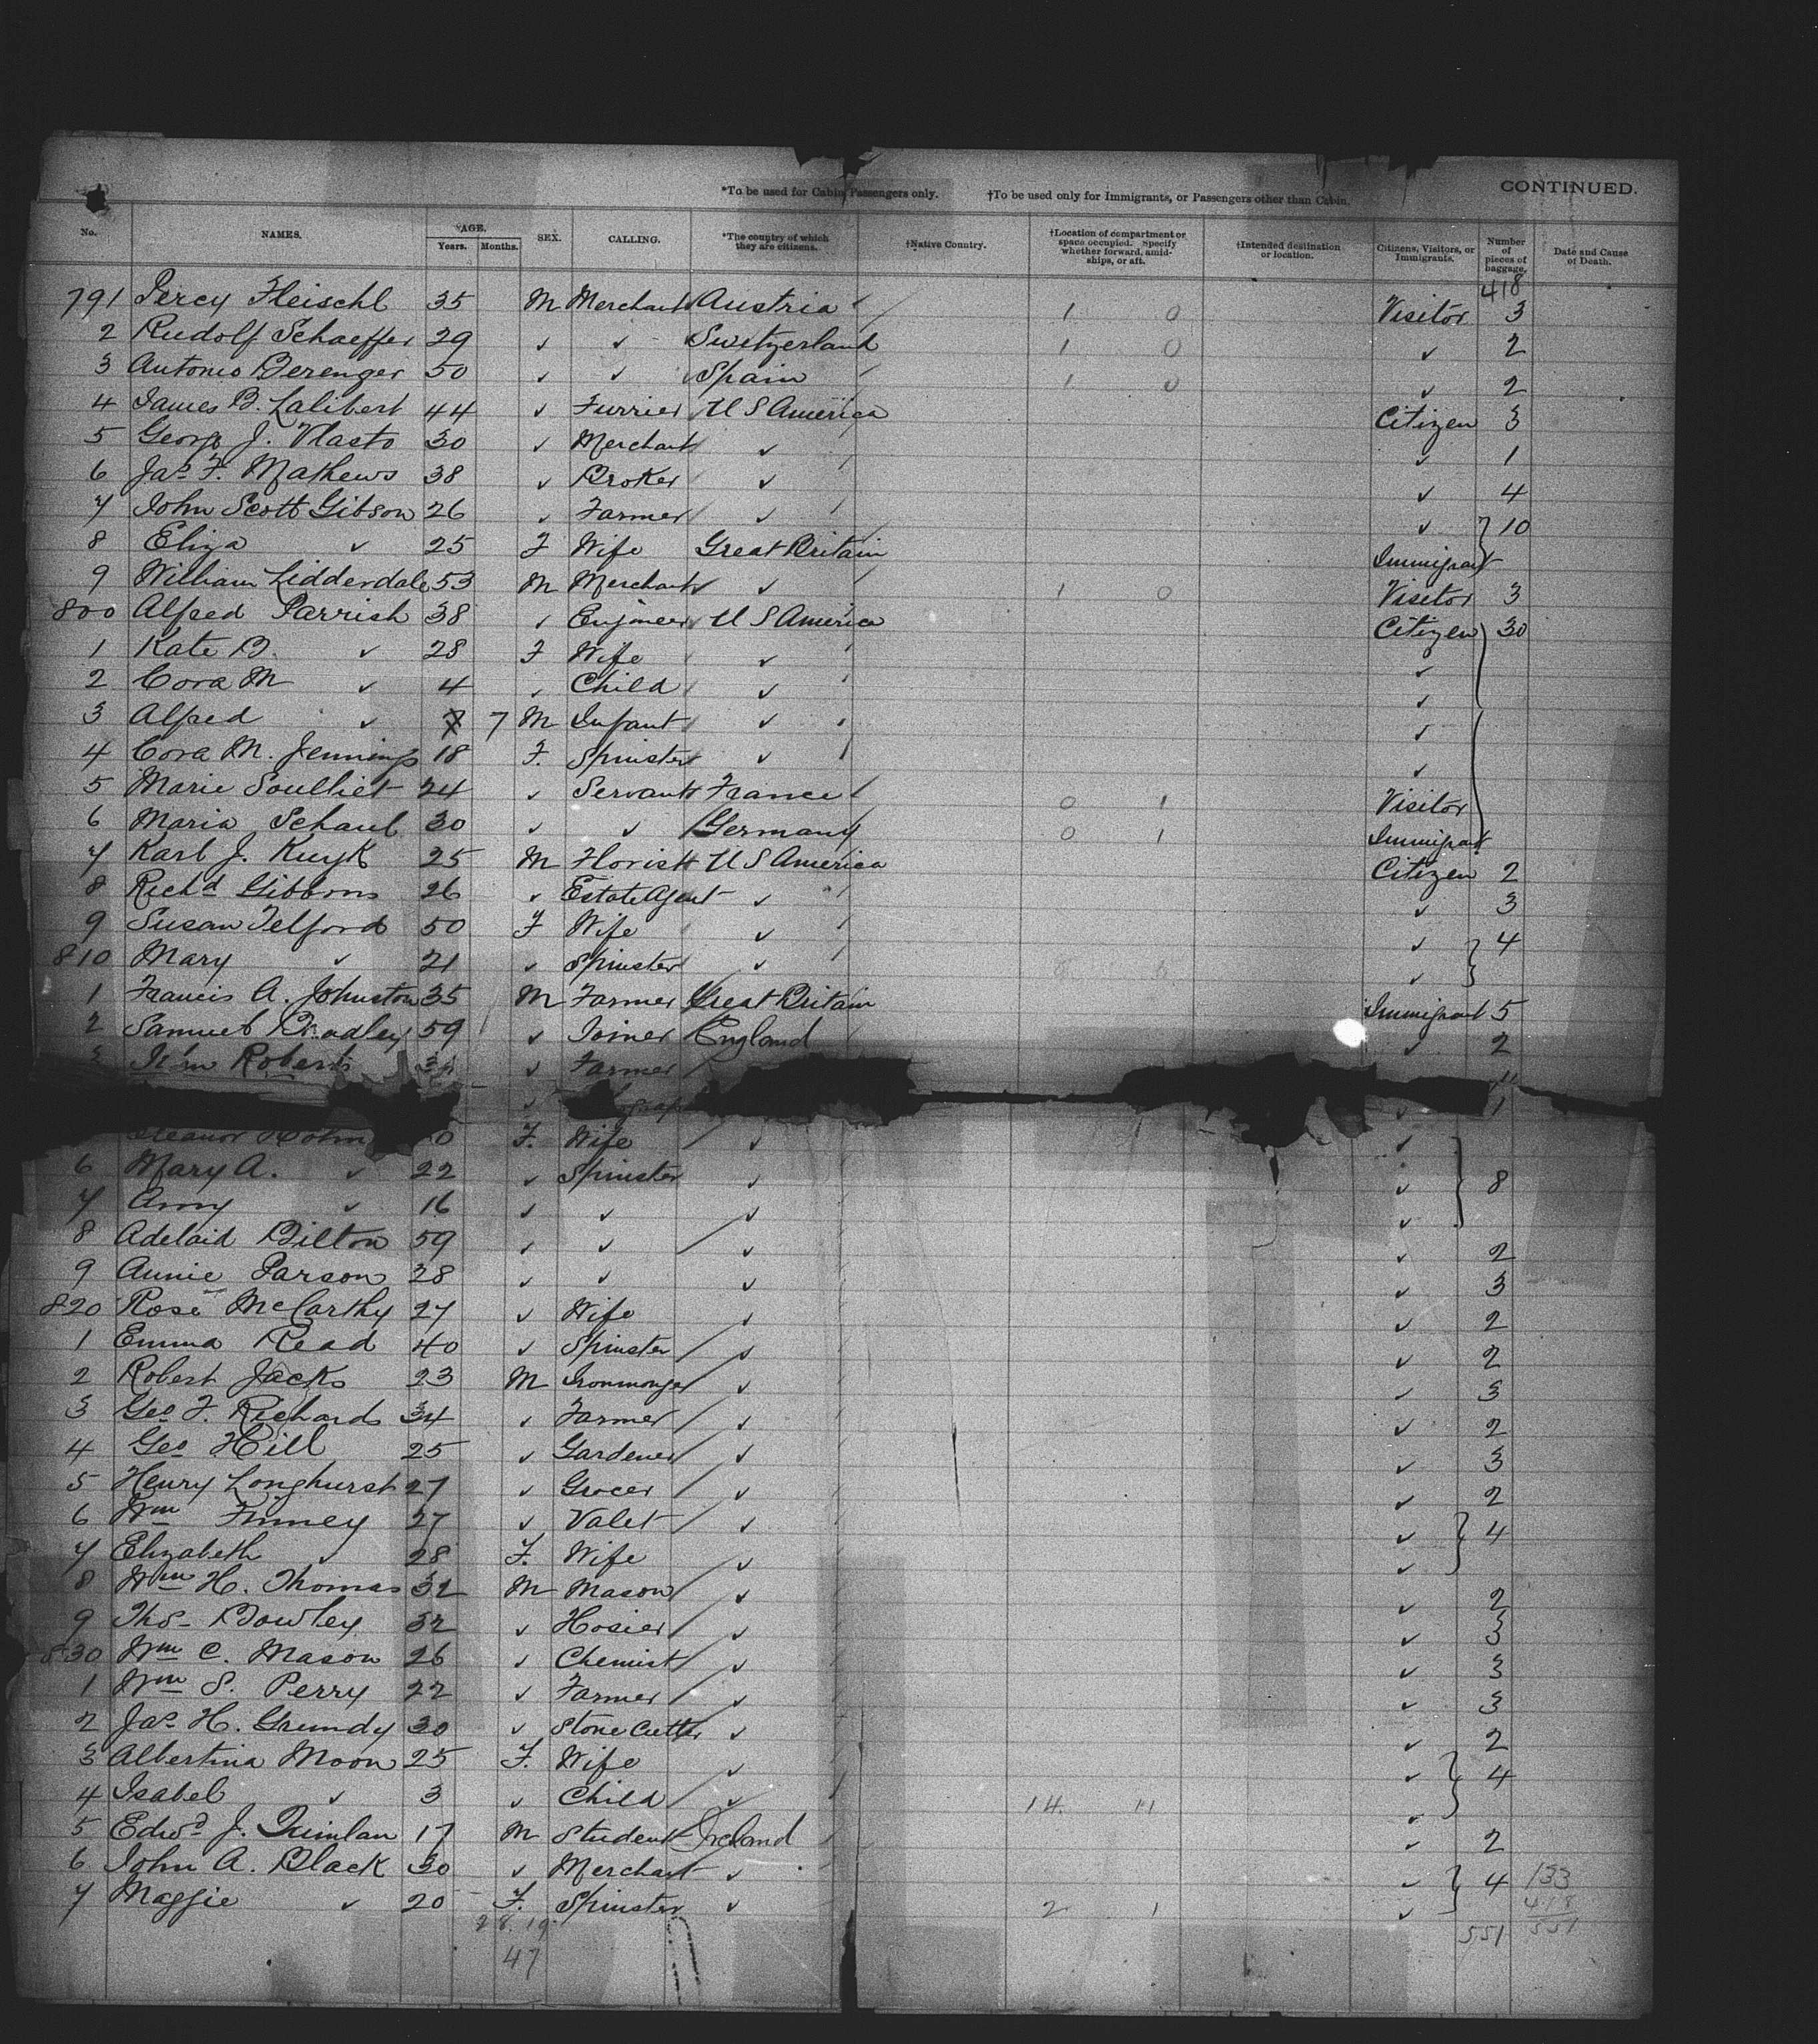 CONTINUED.
*To be used for Cabin Passengers only. †To be used only for Immigrants, or Passengers other than Cabin.
No. NAMES. AGE. Years. Months. SEX. CALLING. *The country of which they are citizens. †Native Country. †Location of compartment or space occupied. Specify whether forward, amidships, or aft. †Intended destination or location. Citizens, Visitors, or Immigrants. Number of pieces of baggage. Date and Cause of Death.
418
791 Percy Fleischl 35 M Merchant Austria 1 0 Visitor 3
2 Rudolf Schaeffer 29 ✓ ✓ Switzerland 1 0 ✓ 2
3 Antonio Berenger 50 ✓ ✓ Spain 1 0 ✓ 2
4 James B. Lalibert 44 ✓ Furrier U S America Citizen 3
5 George J. Vlasto 30 ✓ Merchant ✓ ✓ 1
6 Jas. F. Mathews 38 ✓ Broker ✓ ✓ 4
7 John Scott Gibson 26 ✓ Farmer ✓ ✓ } 10
8 Eliza ✓ 25 F Wife Great Britain Immigrant
9 William Lidderdale 53 M Merchant ✓ 1 0 Visitor 3
800 Alfred Parrish 38 ✓ Engineer U S America Citizen } 30
1 Kate B. ✓ 28 F Wife ✓ ✓
2 Cora M ✓ 4 ✓ Child ✓ ✓
3 Alfred ✓ 7 M Infant ✓ ✓
4 Cora M. Jennings 18 F. Spinster ✓ ✓
5 Marie Soulliet 24 ✓ Servant France 0 1 Visitor
6 Maria Schaub 30 ✓ ✓ Germany 0 1 Immigrant
7 Karl J. Kuyk 25 M Florist U S America Citizen 2
8 Richd Gibbons 26 ✓ Estate Agent ✓ ✓ 3
9 Susan Telford 50 F Wife ✓ ✓ } 4
810 Mary ✓ 21 ✓ Spinster ✓ ✓
1 Francis A. Johnston 35 M Farmer Great Britain Immigrant 5
2 Samuel Bradley 59 ✓ Joiner England ✓ 2
3 Roberts ✓ Farmer
✓ ✓ 1
Eleanor F. Wife ✓ ✓
6 Mary A. ✓ 22 ✓ Spinster ✓ ✓ } 8
7 Amy ✓ 16 ✓ ✓ ✓ ✓
8 Adelaid Bilton 59 ✓ ✓ ✓ ✓ 2
9 Annie Parson 28 ✓ ✓ ✓ ✓ 3
820 Rose McCarthy 27 ✓ Wife ✓ ✓ 2
1 Emma Read 40 ✓ Spinster ✓ ✓ 2
2 Robert Jacks 23 M Ironmonger ✓ ✓ 3
3 Geo F. Richards 34 ✓ Farmer ✓ ✓ 2
4 Geo Hill 25 ✓ Gardener ✓ ✓ 3
5 Henry Longhurst 27 ✓ Grocer ✓ ✓ 2
6 Wm Finney 27 ✓ Valet ✓ ✓ } 4
7 Elizabeth ✓ 28 F. Wife ✓ ✓
8 Wm H. Thomas 32 M Mason ✓ ✓ 2
9 Thos Bowley 32 ✓ Hosier ✓ ✓ 3
830 Wm C. Mason 26 ✓ Chemist ✓ ✓ 3
1 Wm S. Perry 22 ✓ Farmer ✓ ✓ 3
2 Jas H. Grundy 30 ✓ Stone Cutter ✓ ✓ 2
3 Albertina Moon 25 F. Wife ✓ ✓ } 4
4 Isabel ✓ 3 ✓ Child ✓ 14 11 ✓
5 Edwd J. Quinlan 17 M Student Ireland ✓ 2
6 John A. Black 30 ✓ Merchant ✓ ✓ } 4 133
7 Maggie ✓ 20 F. Spinster ✓ 2 1 ✓ 418
28 19 551 551
47